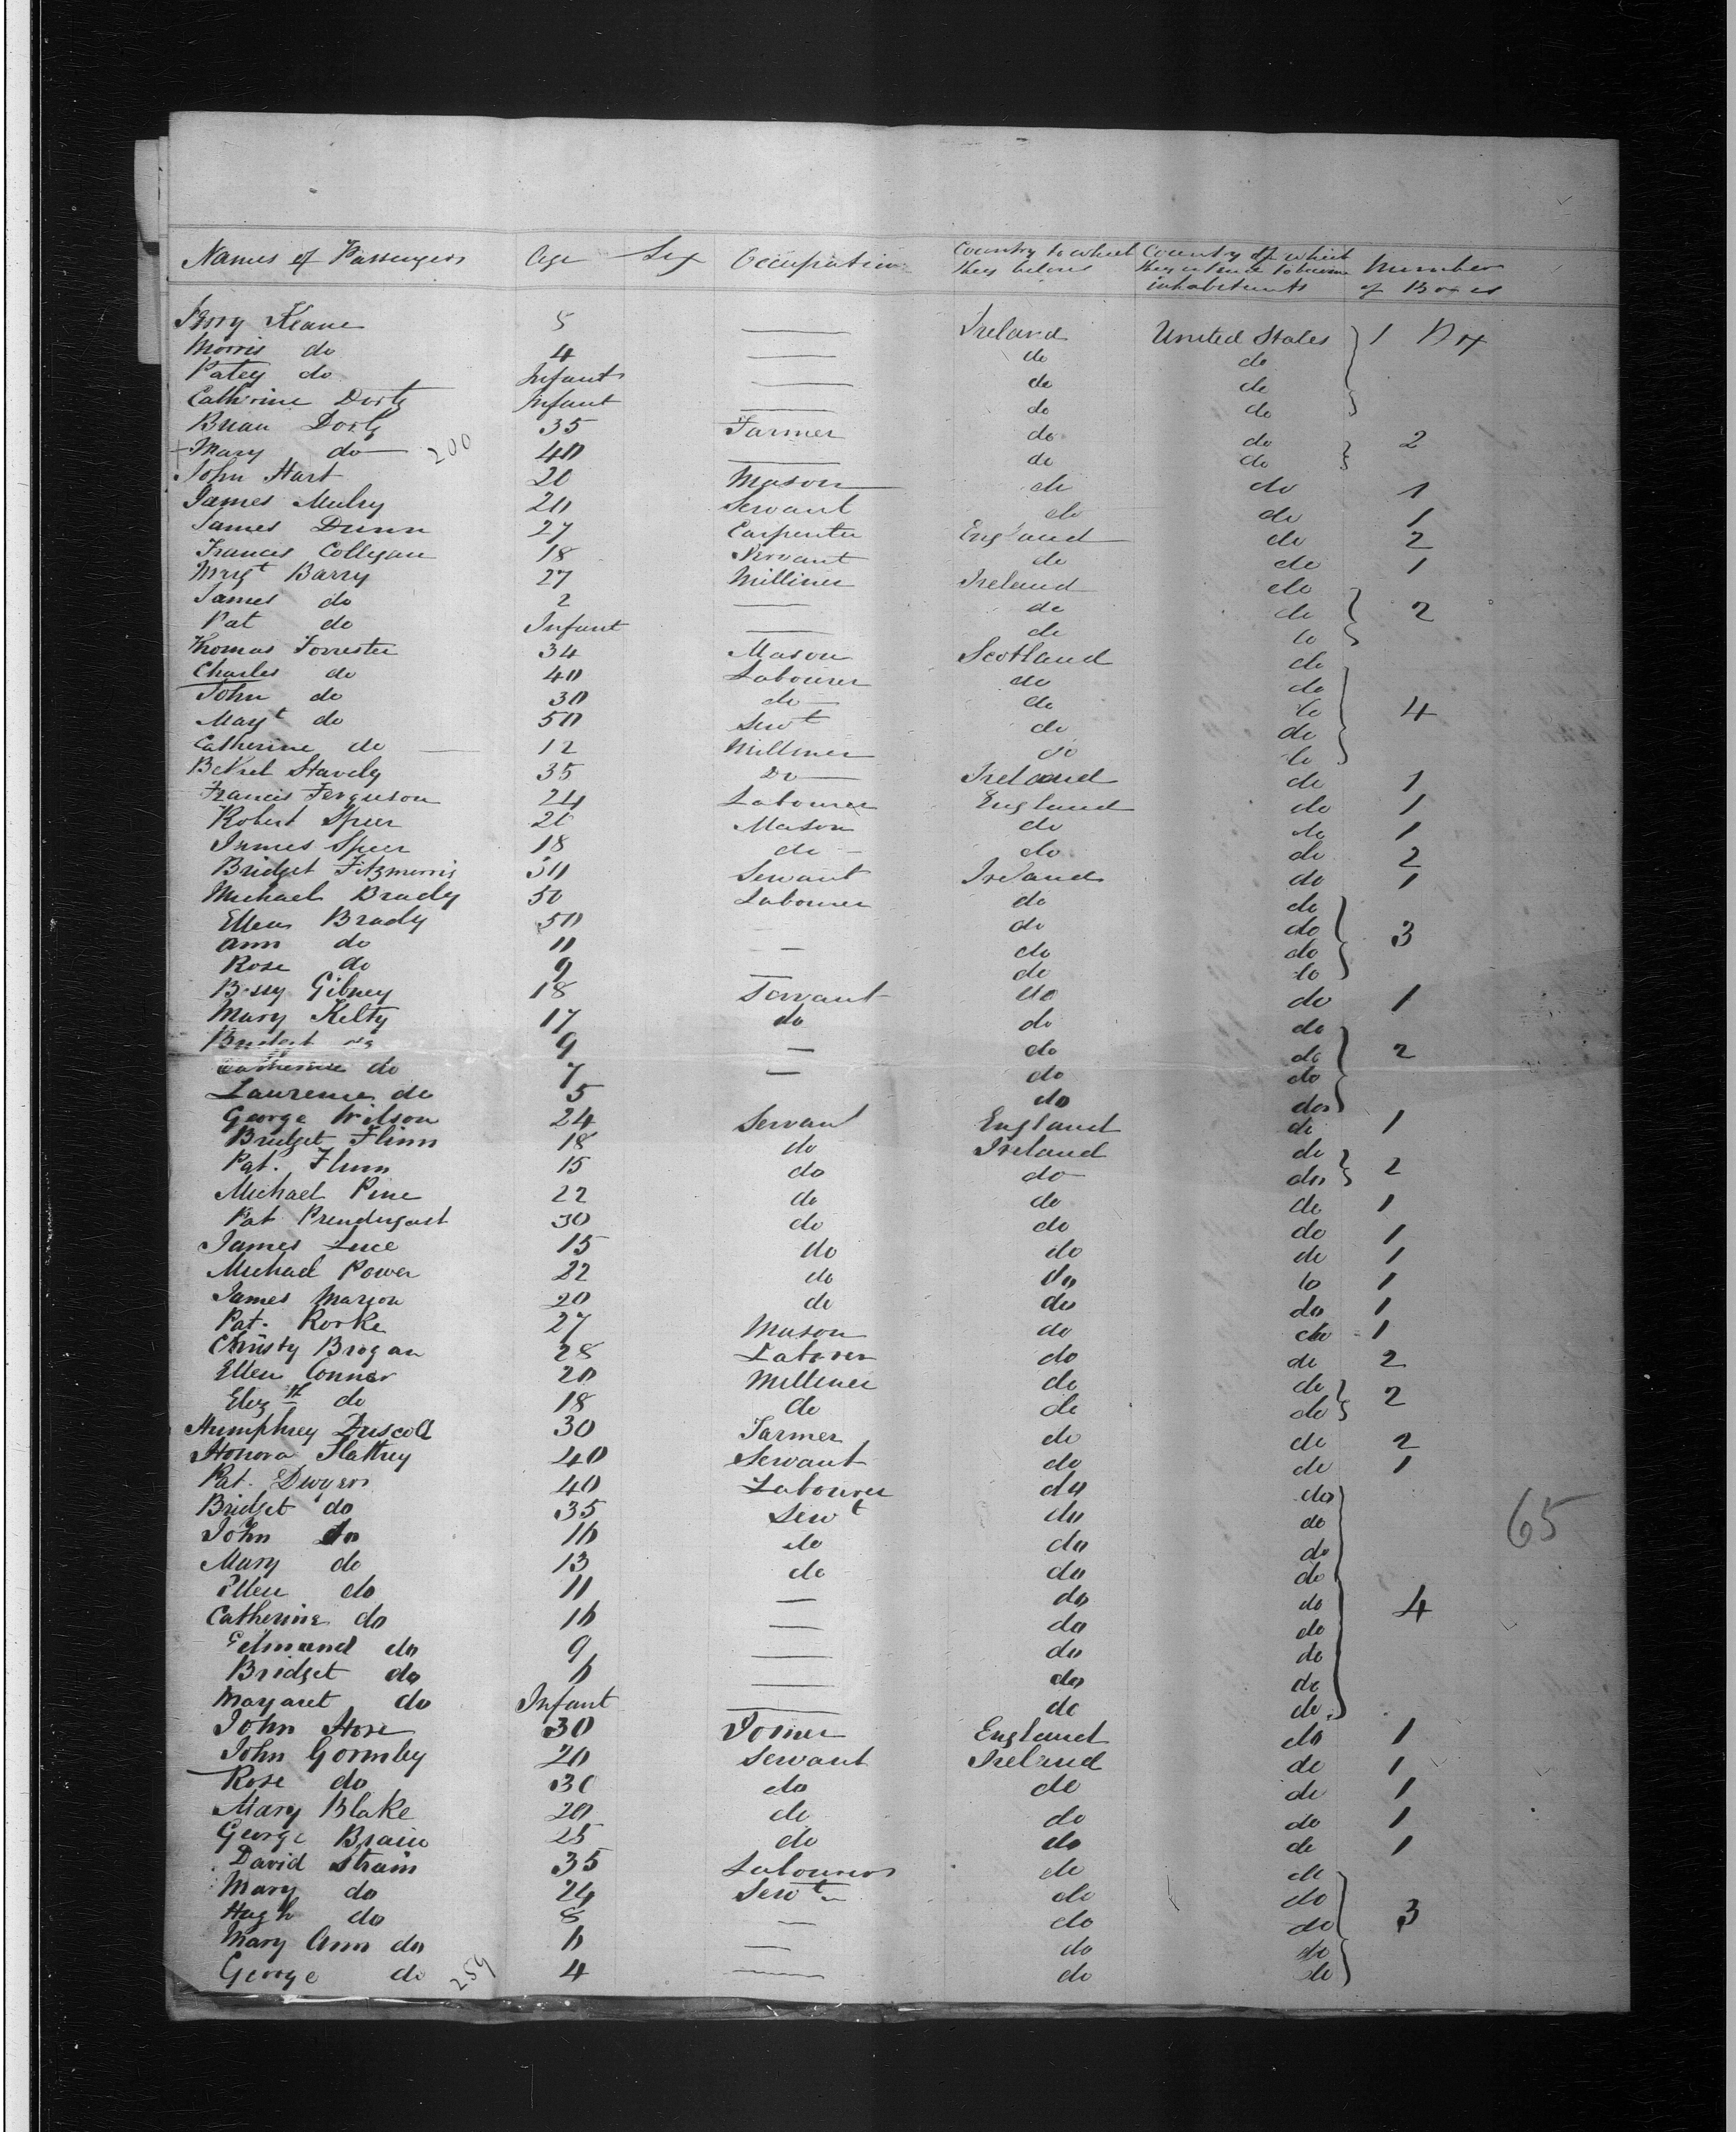 Names of Passengers Age Sex Occupation Country to which they belong Country of which they intend to become inhabitants Number of Boxes
Keane 5 — Ireland United States 1 Box
Morris do 4 — do do
Patey do Infant — do do
Catherine Infant — do do
Brian 35 Farmer do do
Mary do 200 40 — do do 2
John Hart 20 Mason do do 1
James Mulry 20 Servant do do 1
James Dunn 27 Carpenter England do 2
Francis Collegan 18 Servant do do 1
Margt Barry 27 Milliner Ireland do
James do 2 — do do 2
Pat do Infant — do do
Thomas Forrester 34 Mason Scotland do
Charles do 40 Labourer do do
John do 30 do do do 4
Mayt do 50 Servt do do
Catherine do 12 Milliner do do
Stavely 35 Do Ireland do 1
Francis Ferguson 24 Labourer England do 1
Robert Speer 20 Mason do do 1
James Speer 18 do do do 2
Bridget Fitzmorris 30 Servant Ireland do 1
Michael Brady 50 Labourer do do
Ellen Brady 50 do do 3
Ann do 11 — do do
Rose do 9 — do do
Bessy Gibney 18 Servant do do 1
Mary Kelty 17 do do do
Bridget do 9 — do do 2
Catherine do 7 — do do
Laurence do 5 do do
George Wilson 24 Servant England do 1
Bridget Flinn 18 do Ireland do
Pat. Flinn 15 do do do 2
Michael Pine 22 do do do 1
Pat Prendergast 30 do do do 1
James Luce 15 do do do 1
Michael Power 22 do do do 1
James Marion 20 do do do 1
Pat. Rorke 27 Mason do do 1
Christy Brogan 28 Laborer do do 2
Ellen Connor 20 Milliner do do
Elizth do 18 do do do 2
Humphrey Driscoll 30 Farmer do do 2
Honora Flattrey 40 Servant do do 1
Pat. Dwyer 40 Labourer do do
Bridget do 35 Servt do do
John do 16 do do do
Mary do 13 do do do
Ellen do 11 — do do 4
Catherine do 16 — do do
Edmund do 9 — do do
Bridget do 6 — do do
Margaret do Infant — do do
John Hore 30 Joiner England do 1
John Gormley 20 Servant Ireland do 1
Rose do 30 do do do 1
Mary Blake 20 do do do 1
George Brain 25 do do do 1
David Strain 35 Labourer do do
Mary do 24 Servt do do
Hugh do 8 — do do 3
Mary Ann do 6 — do do
George do 259 4 — do do
65